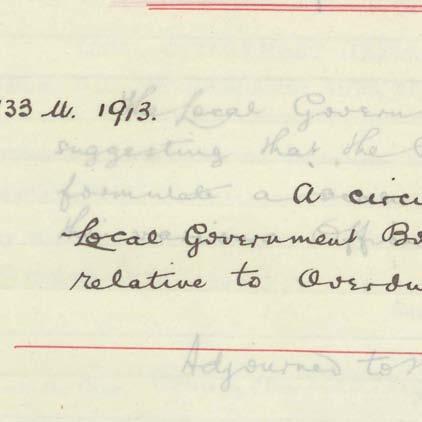 133 M. 1913.
A circu
Local Government Bo
relative to Overdu